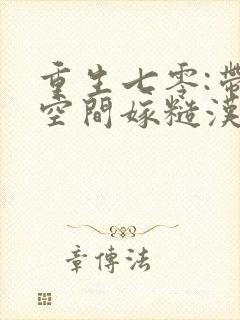 重生七零:帶
空間嫁糙漢
章傳法